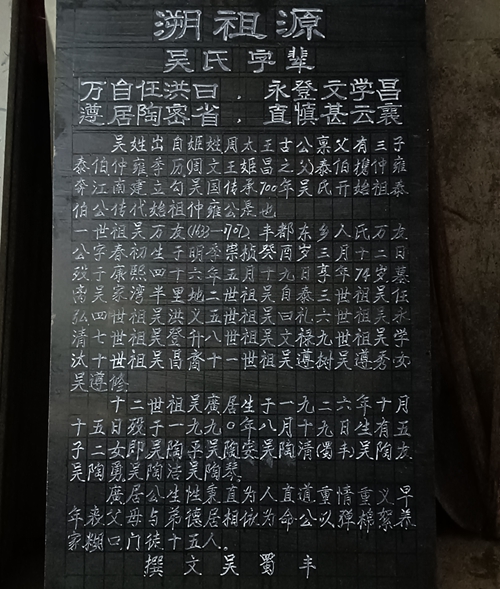 溯祖源
吴氏字辈
万自任洪曰，永登文学昌
遵居陶密省，直慎甚云襄
吴姓出自姬姓周太王古公禀父有三子
泰伯仲雍季历(周文王姬昌之父)泰伯携仲雍
奔江南建立勾吴国传承700年吴氏开始祖泰
伯公传代始祖仲雍公是也
一世祖吴万友(1633—1707)丰都东乡人氏万友
公字春初生于明季崇桢癸酉岁三月十二日
殁于康熙四十六年五月十九日亨年74岁墓
吴家湾半里地二世祖吴自泰三世祖吴任
弘四世祖吴洪义五世祖吴曰礼六世祖吴永
清七世祖吴登升八世祖吴文禄九世吴学
汰十世祖吴昌斋十一世祖吴遵树吴遵秀女
吴遵修
十二世祖吴廣居生于一九二六年十月
十五日殁于一九九0年八月十九日生有五
子二女即吴陶平吴陵安吴陶清蜀丰吴陶友
吴陶勇吴陶洁吴陶琴
廣居公生性秉直为人直道重情重义早
年丧父母与弟德居相依为命公以弹棉絮养
家糊口门徒十五人。
撰文吴蜀丰